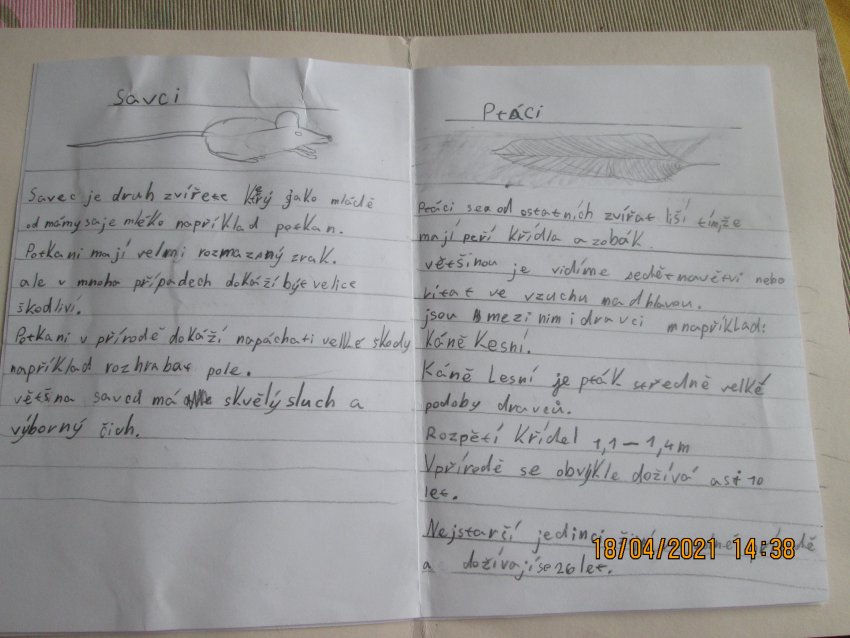 Savci
Savec je druh zvířete ktrý jako mládě
od mámy saje mléko například potkan.
Potkani mají velmi rozmazaný zrak.
ale v mnoha případech dokáží být velice
škodliví.
Potkani v přírodě dokáží napáchati velké skody
například rozhrabat pole.
většina savců má skvělý sluch a
výborný čich.
Ptáci
Ptáci se od ostatních zvířat liší tím, že
mají peří křídla a zobák
většinou je vidíme sedět na větvi nebo
lítat ve vzuchu nad hlavou.
jsou mezi nimi dravci například:
Káně Lesní.
Káně Lesní je pták středně velké
podoby dravců.
Rozpětí křídel 1,1 – 1,4 m
V přírodě se obvykle dožívá asi 10
let.
Nejstarčí jedinci
a dožívají se 26 let.
18/04/2021 14:38